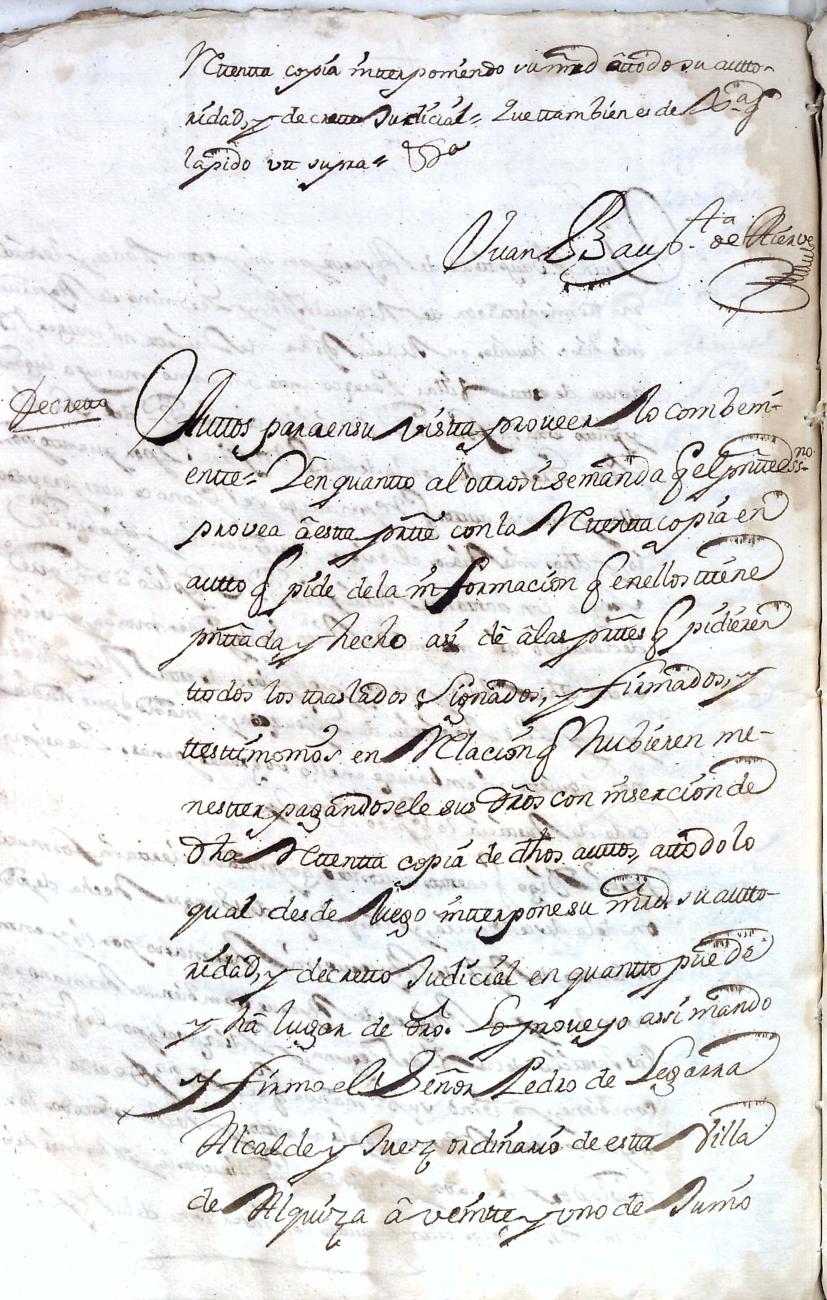 Rttentta copia interponiendo su mrd attodo su autto-
ridad, y decretto Judicial = Que ttambien es de
lapido utt supra =
Juan Baup.ta de
Decretto
Auttos para en su vistta proveer lo combeni-
entte = Y en quantto al ottrosi se manda q el pntte ssno
provea â estta partte con la Rttentta copia en
autto q pide de la informacion q en ellos ttiene
pnttada y hecho assi dê â las parttes q pidieren
ttodos los ttraslados signados, y firmados, y
ttesttimonios en Relacion q hubieren me-
nestter pagandosele sus dros con insercion de
dha Rttentta copia de dhos auttos, attodo lo
qual desde luego interpone su mrd su autto-
ridad, y decretto Judicial en quantto puede
y hâ lugar de dro. Lo proveyo assi mando
y firmo el Señor Pedro de Legarra
Alcalde y Juez ordinario de estta Villa
de Alquiza â veintte y uno de Junio